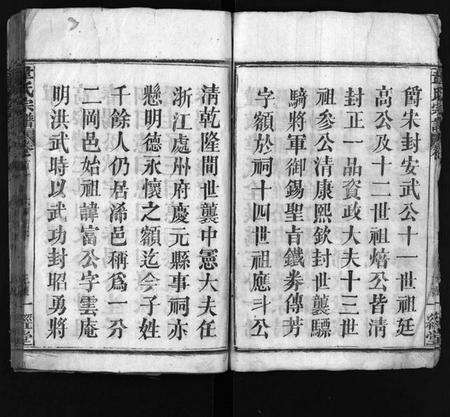 爵朱封安武公十一世祖廷
高公及十二世祖熺公皆清
封正一品資政大夫十三世
祖参公清康熙欽封世襲驃
騎將軍御錫聖旨鐵券傳芳
字額於祠十四世祖應斗公
清乾隆間世襲中憲大夫任
浙江處州府慶元縣事祠亦
懸明德永懷之額迄今子姓
千餘人仍居浠邑稱爲一分
二岡邑始祖諱富公字雲庵
明洪武時以武功封昭勇將
氏宗譜
經堂